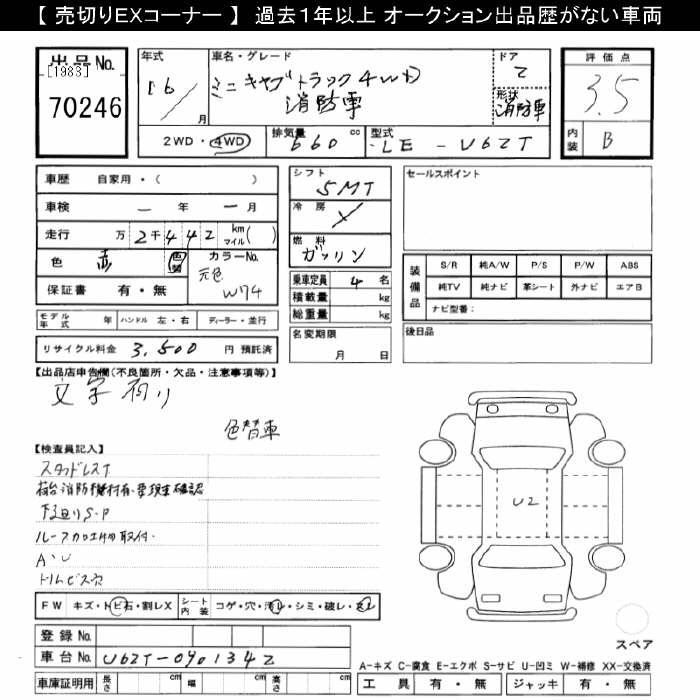 【 売切りEXコーナー 】 過去１年以上 オークション出品歴がない車両
出品No. [1983] 70246
年式 16 / 月
車名・グレード ミニキャブトラック 4WD 消防車
ドア 2
形状 消防車
評価点 3.5
内装 B
2WD ・ 4WD
排気量 660 cc
型式 LE - U62T
車歴 自家用・( )
車検 ー 年 ー 月
走行 万 2 千 4 4 2 km マイル ( )
色 赤 色替
カラーNo. 元色 W74
保証書 有・無
モデル年式 年 ハンドル 左・右 ディーラー・並行
リサイクル料金 3,500 円 預託済
シフト 5MT
冷房 ✓
燃料 ガソリン
乗車定員 4 名
積載量 kg
総重量 kg
名変期限 月 日
セールスポイント
装備品 S/R 純A/W P/S P/W ABS
純TV 純ナビ 革シート 外ナビ エアB
ナビ型番：
後日品
【出品店申告欄(不良箇所・欠品・注意事項等)】
文字有り
色替車
【検査員記入】
スタッドレスT
荷台消防機材有・要現車確認
下廻りS・P
ルーフ 取付・
A・U
トリムビス穴
FW キズ・トビ石・割レX
シート内装 コゲ・穴・汚レ・シミ・破レ・
U2
スペア
登録No.
車台No. U62T-0901342
車庫証明用 長さ cm 幅 cm 高さ cm
A-キズ C-腐食 E-エクボ S-サビ U-凹ミ W-補修 XX-交換済
工具 有・無 ジャッキ 有・無